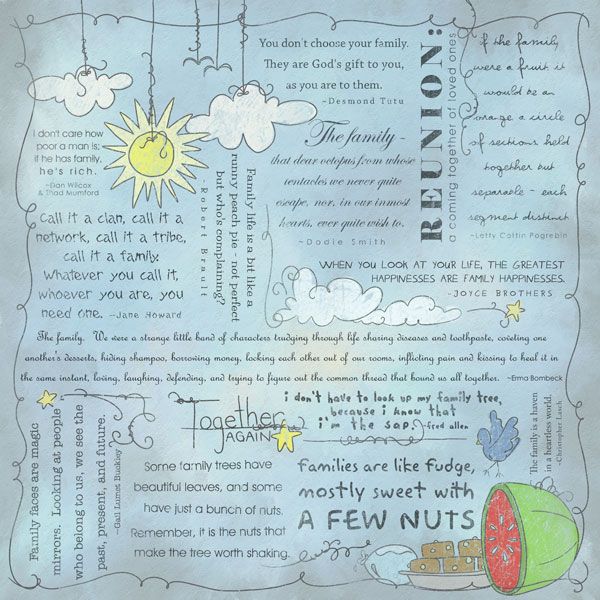 You don't choose your family.
They are God's gift to you,
as you are to them.
~Desmond Tutu
REUNION:
a coming together of loved ones
if the family
were a fruit it
would be an
orange a circle
of sections held
together but
separable - each
segment distinct
~Letty Cottin Pogrebin
I don't care how
poor a man is;
if he has family,
he's rich.
~Dan Wilcox
& Thad Mumford
The family -
that dear octopus from whose
tentacles we never quite
escape, nor, in our inmost
hearts, ever quite wish to.
~ Dodie Smith
Family life is a bit like a
runny peach pie - not perfect
but who's complaining?
~Robert Brault
Call it a clan, call it a
network, call it a tribe,
call it a family.
Whatever you call it,
whoever you are, you
need one. ~Jane Howard
WHEN YOU LOOK AT YOUR LIFE, THE GREATEST
HAPPINESSES ARE FAMILY HAPPINESSES.
~JOYCE BROTHERS
The family. We were a strange little band of characters trudging through life sharing diseases and toothpaste, coveting one
another's desserts, hiding shampoo, borrowing money, locking each other out of our rooms, inflicting pain and kissing to heal it in
the same instant, loving, laughing, defending, and trying to figure out the common thread that bound us all together. ~Erma Bombeck
Family faces are magic
mirrors. Looking at people
who belong to us, we see the
past, present, and future.
~Gail Lumet Buckley
Together
AGAIN
i don't have to look up my family tree,
because i know that
i'm the sap. ~fred allen
The family is a haven
in a heartless world.
~Christopher Lasch
Some family trees have
beautiful leaves, and some
have just a bunch of nuts.
Remember, it is the nuts that
make the tree worth shaking.
Families are like fudge,
mostly sweet with
A FEW NUTS